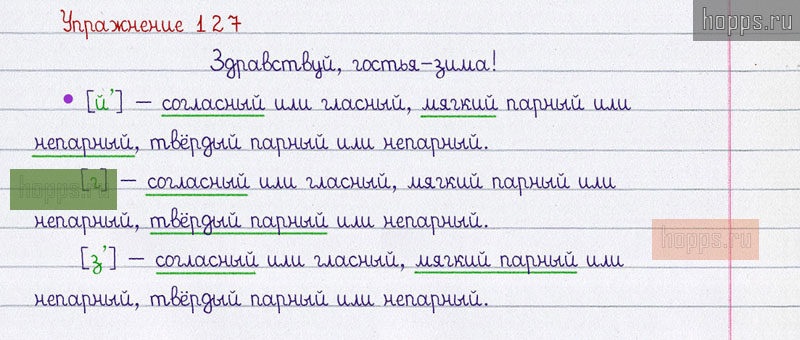 Упражнение 127
hopps.ru
Здравствуй, гостья-зима!
• [й'] — согласный или гласный, мягкий парный или
непарный, твёрдый парный или непарный.
hopps.ru
[г] — согласный или гласный, мягкий парный или
непарный, твёрдый парный или непарный.
hopps.ru
[з'] — согласный или гласный, мягкий парный или
непарный, твёрдый парный или непарный.